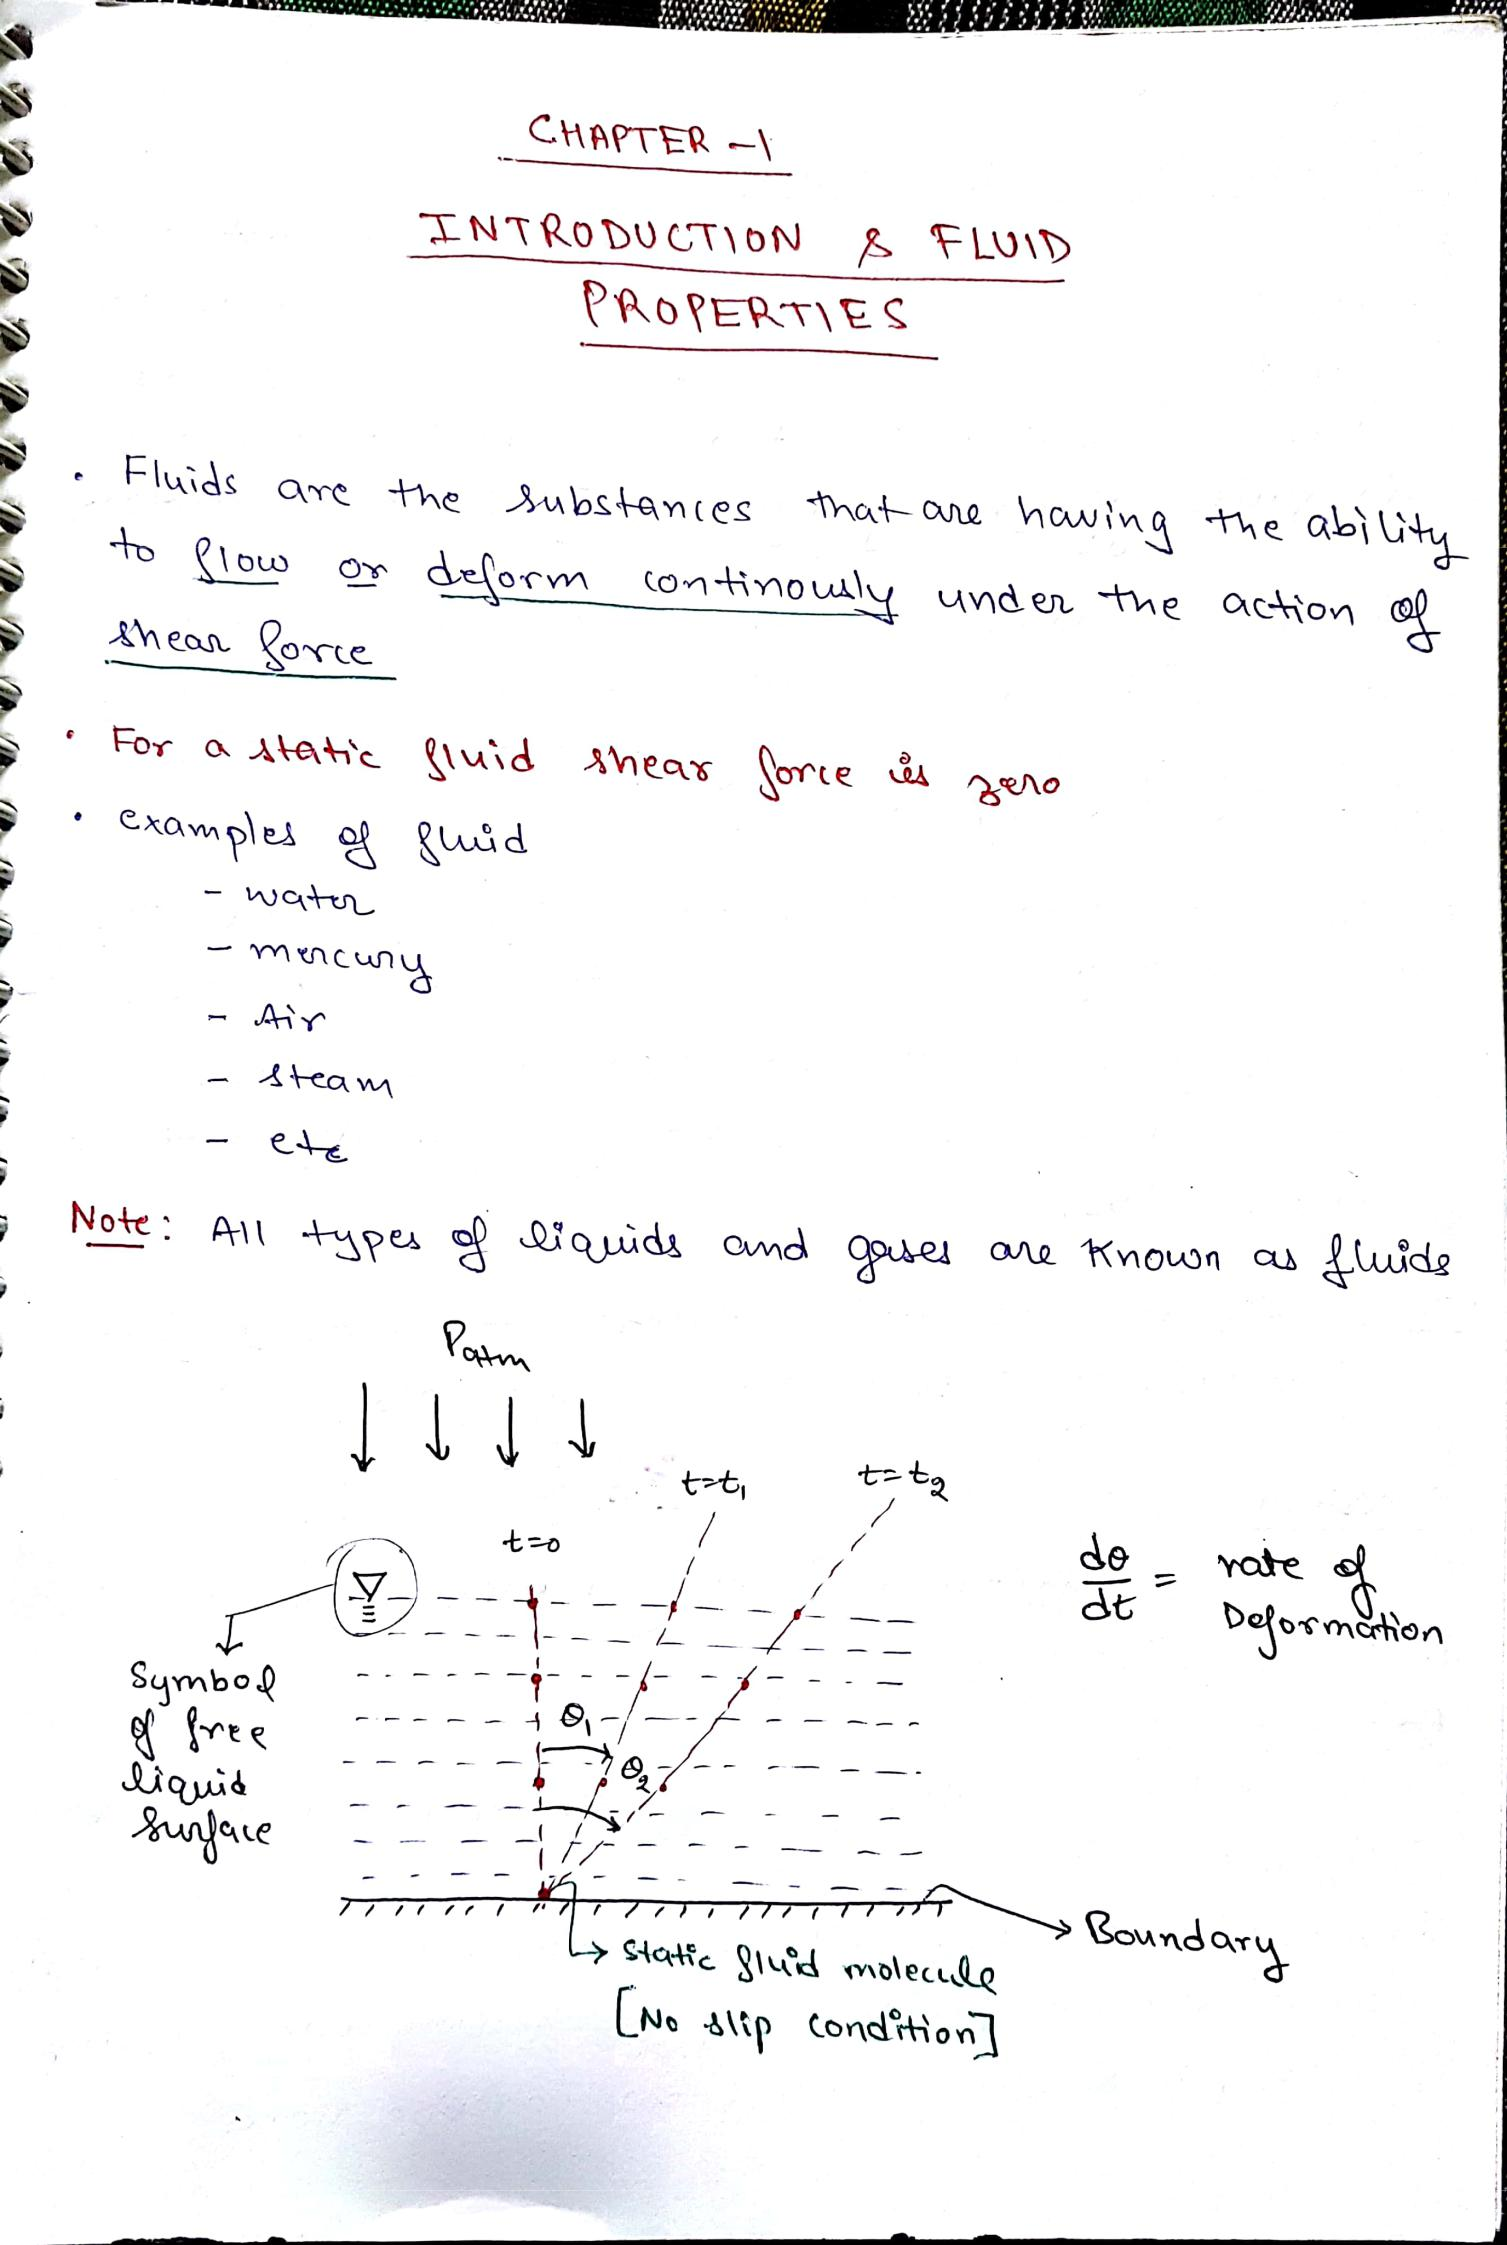 CHAPTER -1
INTRODUCTION & FLUID
PROPERTIES
• Fluids are the substances that are having the ability
to flow or deform continously under the action of
shear force
• For a static fluid shear force is zero
• examples of fluid
- water
- mercury
- Air
- steam
- etc
Note: All types of liquids and gases are known as fluids
Patm
t=t₁
t=t₂
t=0
dθ/dt = rate of
Deformation
Symbol
of free
liquid
surface
θ₁
θ₂
Boundary
static fluid molecule
[No slip condition]